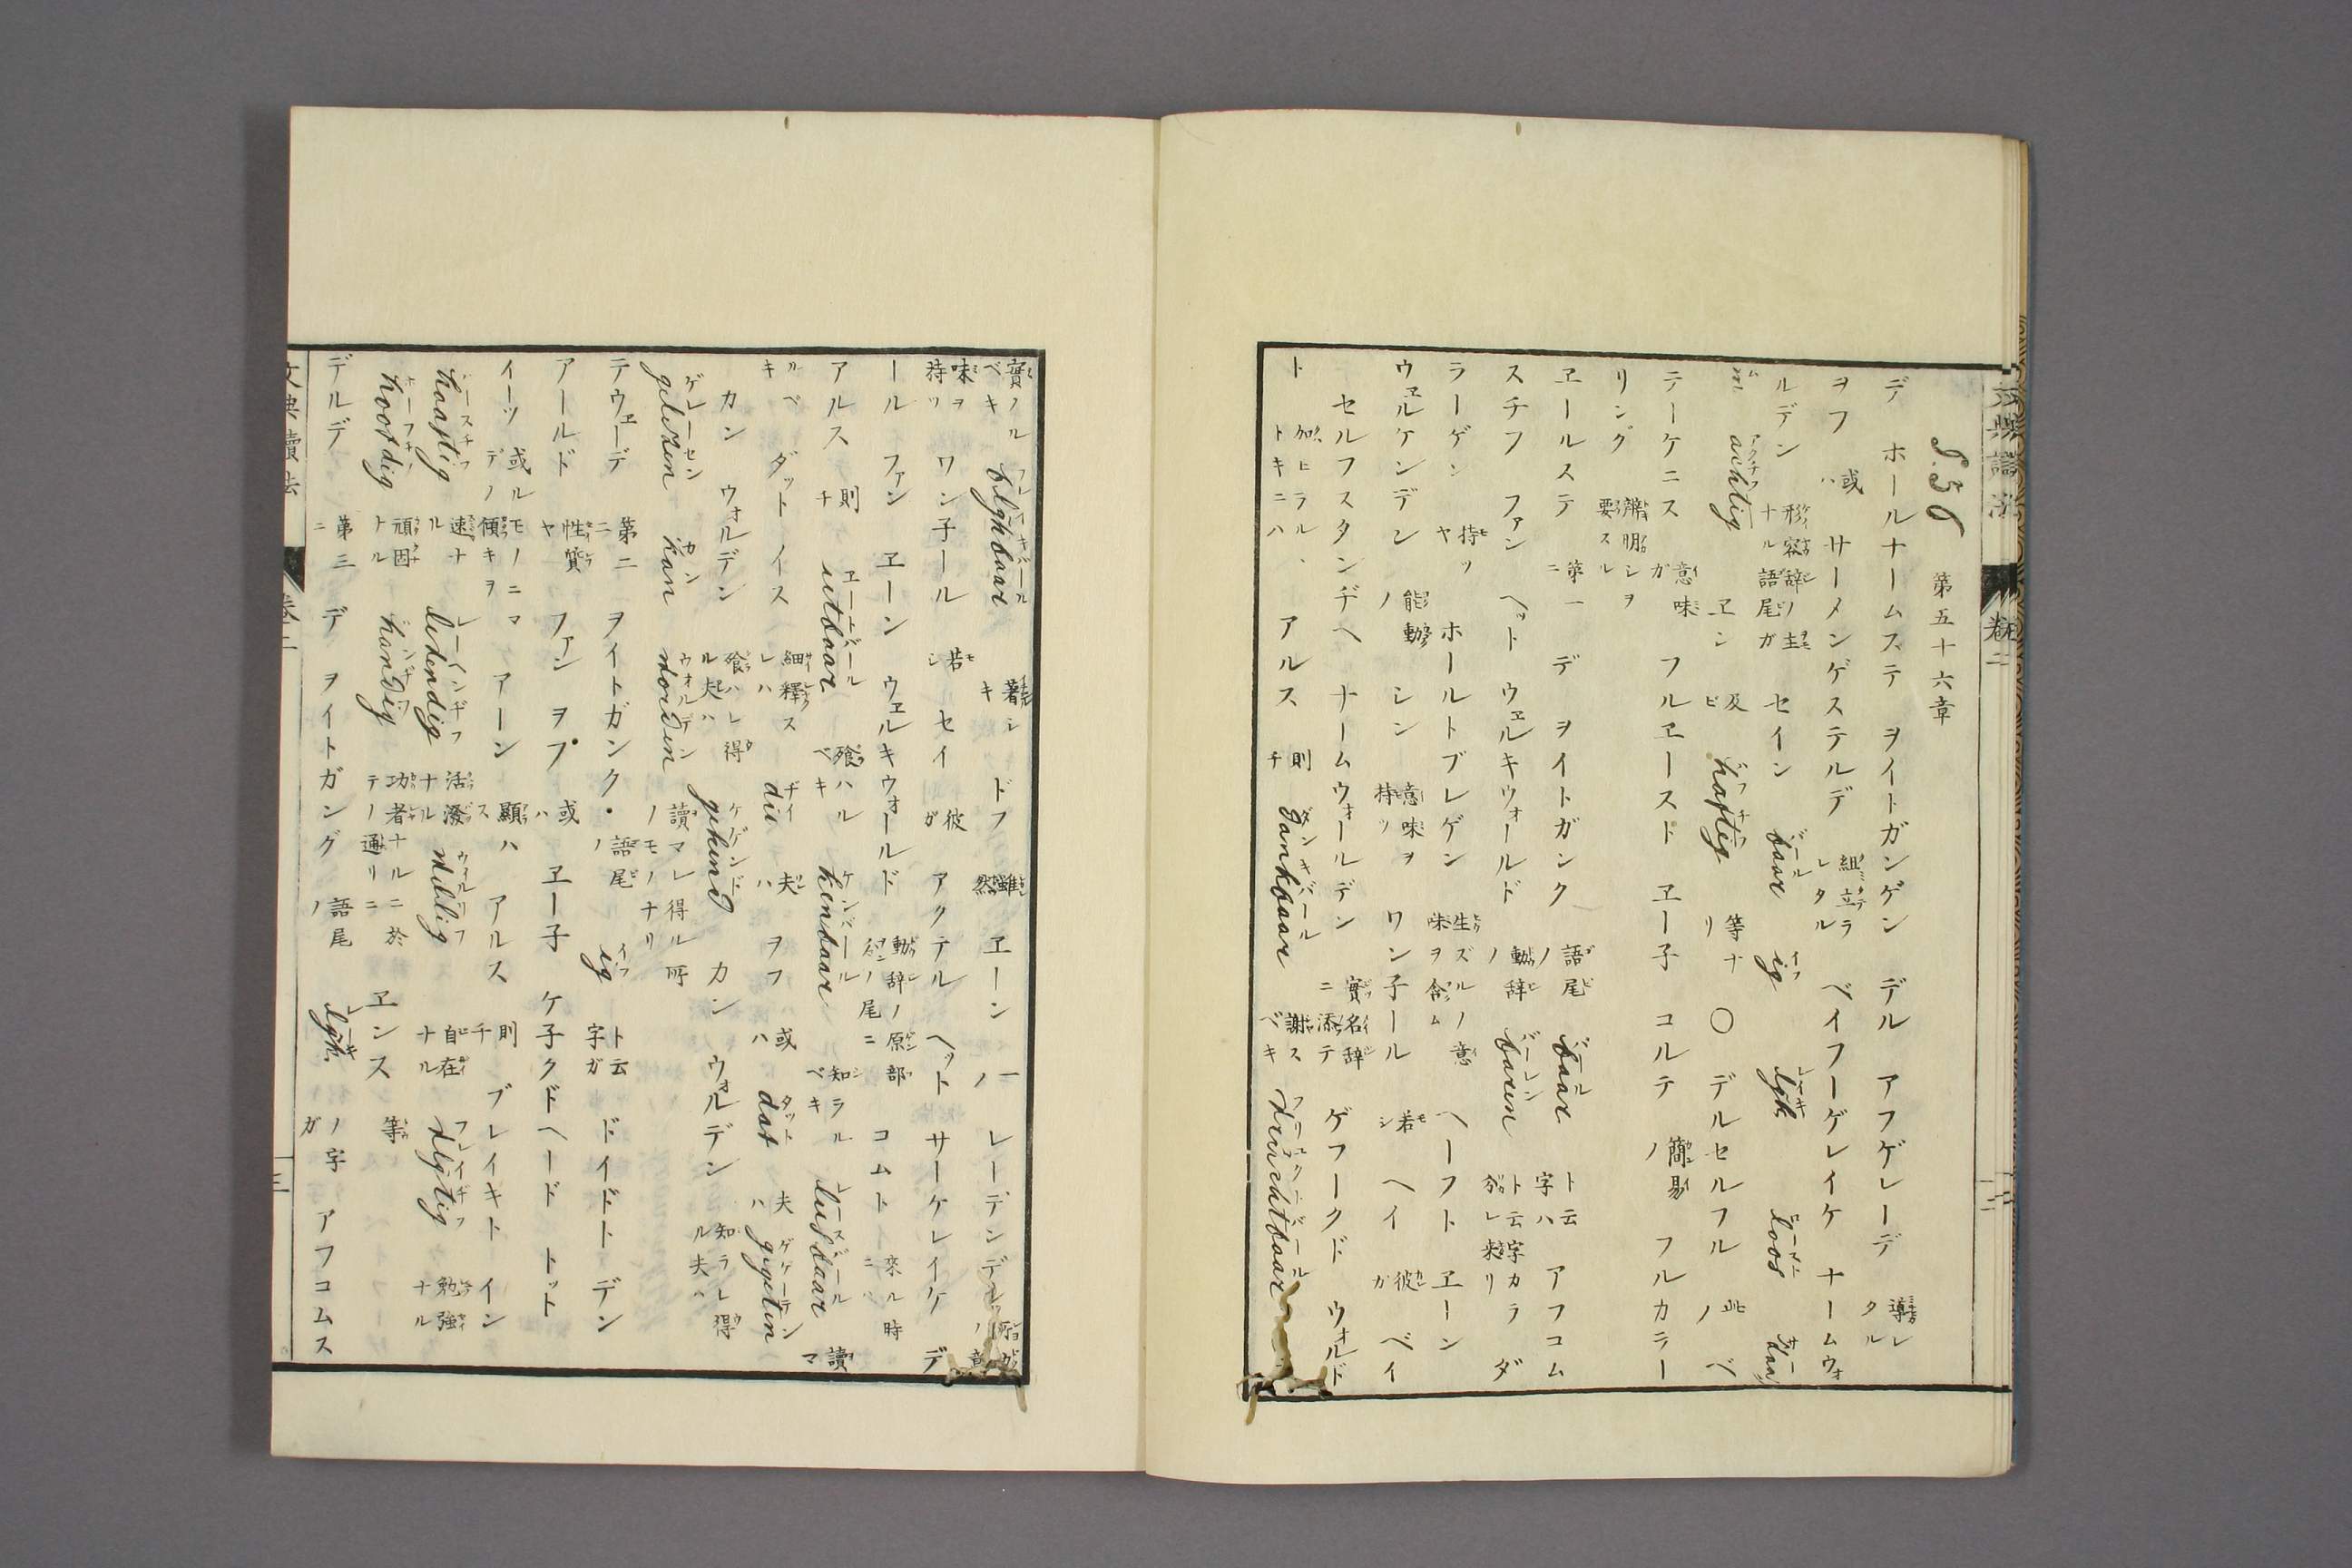 文典讀法 卷二 二
§.56 第五十六章
デ ホールナームステ ヲイトガンゲン デル アフゲレーデ 導レタル
ヲフ 或ハ サーメンゲステルデ 組立ラレタル ベイフーゲレイケ ナームウォ
ルデン 形容辞ノ主ナル語尾ガ セイン baar バール ig イフ lijk レーキ loos ロース zaa サー
m ム achtig アクチフ ヱン 及ビ haftig ハフチフ 等ナリ ○ デルセルフル 此ノ ベ
テーケニス 意味ガ フルヱースド ヱー子 コルテ 簡易ノ フルカラー
リング 辨明シヲ要スル
ヱールステ 第一ニ デ ヲイトガンク 語尾ノ baar バール ト云字ハ アフコム
スチフ ファン ヘット ウヱルキウォールド 動辞ノ baren バーレン ト云字カラ列レ来リ ダ
ラーゲン 持ツヤ ホールトブレゲン 生ズルノ意味ヲ含ム ヘーフト ヱーン
ウヱルケンデン 能動ノ シン 意味ヲ持ツ ワン子ール 若シ ヘイ 彼ガ ベイ
セルフスタンヂヘ ナームウォールデン 實名辞ニ添テ ゲフークド ウォルド
ト 加ヒラルトキニハ、 アルス 則チ dankbaar ダンキバール 謝スベキ vruchtbaar
實ノルベキ blijkbaar ブレーキバール 著シキ ドフ 雖然 ヱーン 一ノ レーデンデン
味ヲ持ツ ワン子ール 若シ セイ 彼ガ アクテル ヘット サーケレイケ デ
ール ファン ヱーン ウヱルキウォールド 動辞ノ原部ノ尾ニ コムト 來ル時ニハ
アルス 則チ eetbaar ヱートバール 喰ハルベキ kenbaar ケンバール 知ラルベキ leesbaar レースバール 讀マ
ルベキ ダット イス 細釋スレハ die ヂイ 夫ハ ヲフ 或ハ dat ダット 夫ハ gegeten ゲゲーテン
カン ウォルデン 喰ハレ得ル夫ハ gekend ケゲンド カン ウォルデン 知ラレ得ル夫ハ
gelezen ゲレーセン kan カン worden ウォルデン 讀マレ得ル所ノモノナリ
テウヱーデ 第二ニ ヲイトガンク 語尾ノ ig イフ ト云字ガ ドイドト デン
アールド 性質ヤ ファン ヲプ 或ハ ヱー子 ケ子クドヘード トット
イーツ 或ルモノニマデノ傾キヲ アーン 顯ハス アルス 則チ ブレイキト イン
haastig ハースチフ 速ナル levendig レーインヂフ 活溌ナル willig ウィルリフ 自在ナル vlijtig フレイチフ 勉強ナル
hoovdig ホーフヂフ 頑固トナル handig ハンヂフ 功者ナルニ於テノ通リニ ヱンス 等
デルデ 第三ニ デ ヲイトガング 語尾ノ lijk レーキ ノ字ガ アフコムス
文典讀法 卷二 三